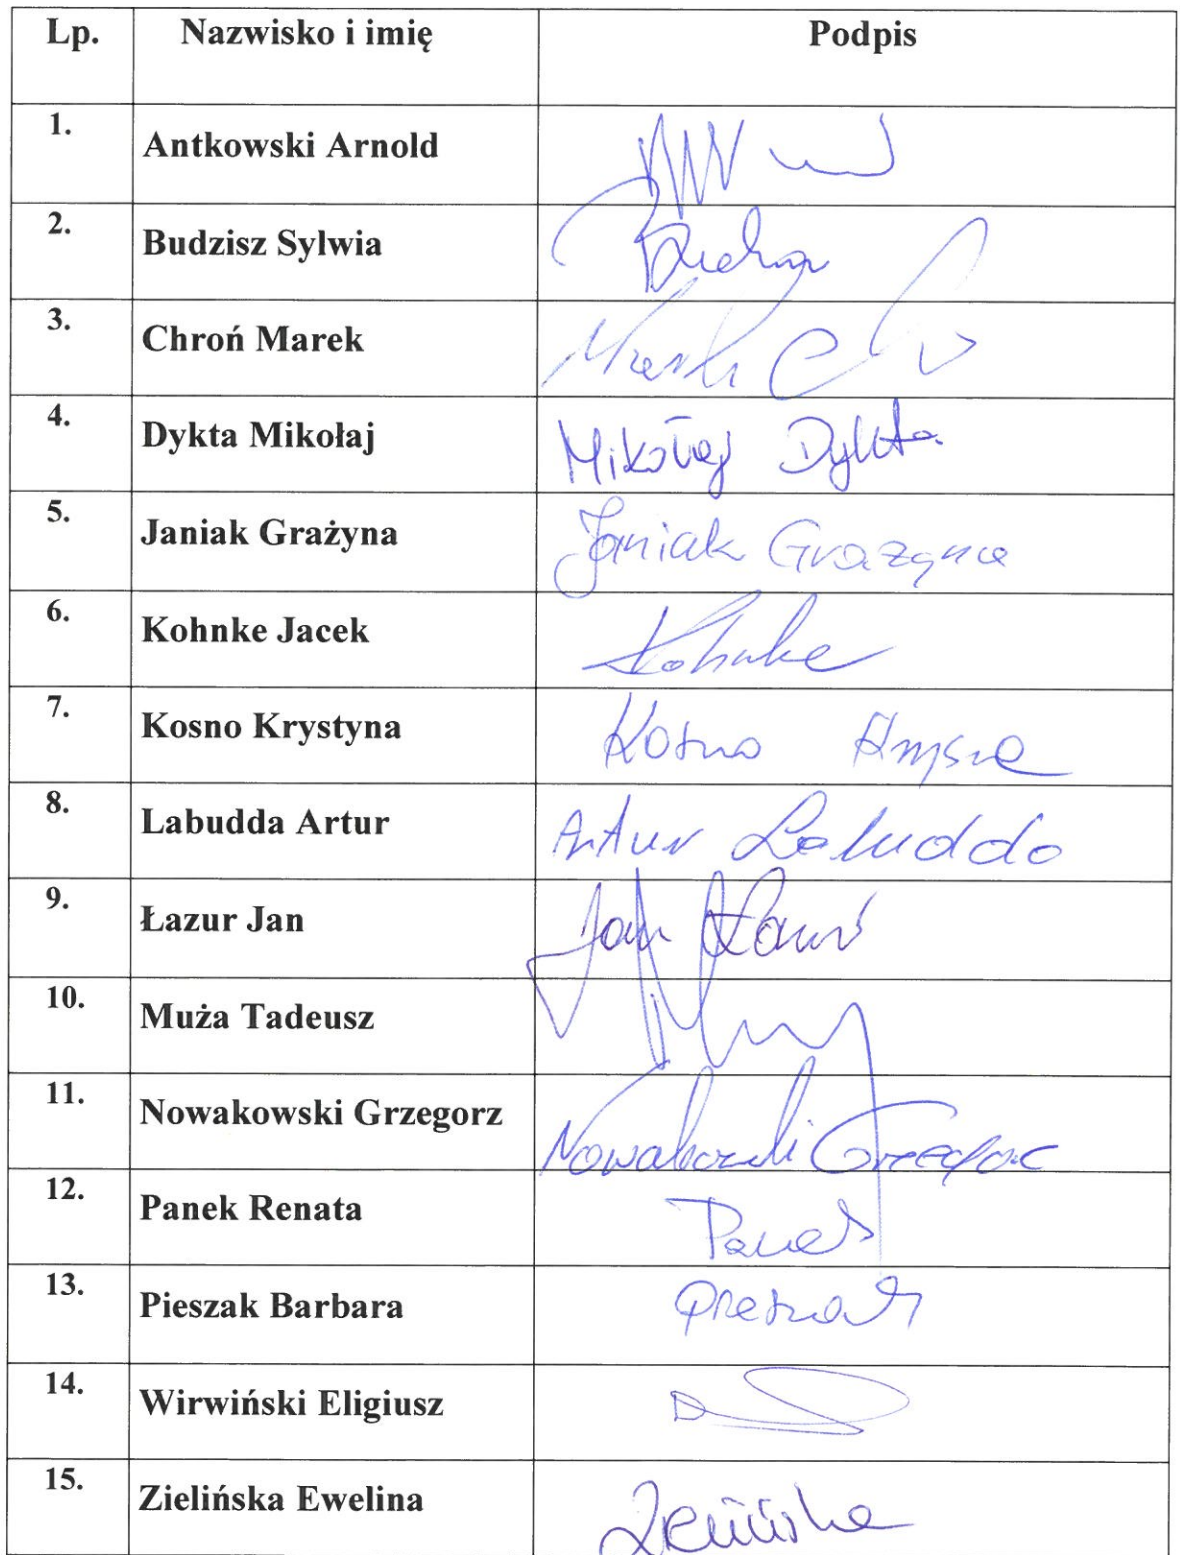 Lp. Nazwisko i imię Podpis
1. Antkowski Arnold
2. Budzisz Sylwia
3. Chroń Marek
4. Dykta Mikołaj Mikołaj Dykta
5. Janiak Grażyna Janiak Grażyna
6. Kohnke Jacek Kohnke
7. Kosno Krystyna Kosno
8. Labudda Artur Artur Labudda
9. Łazur Jan Jan
10. Muża Tadeusz
11. Nowakowski Grzegorz Nowakowski Grzegorz
12. Panek Renata Panek
13. Pieszak Barbara
14. Wirwiński Eligiusz
15. Zielińska Ewelina Zielińska